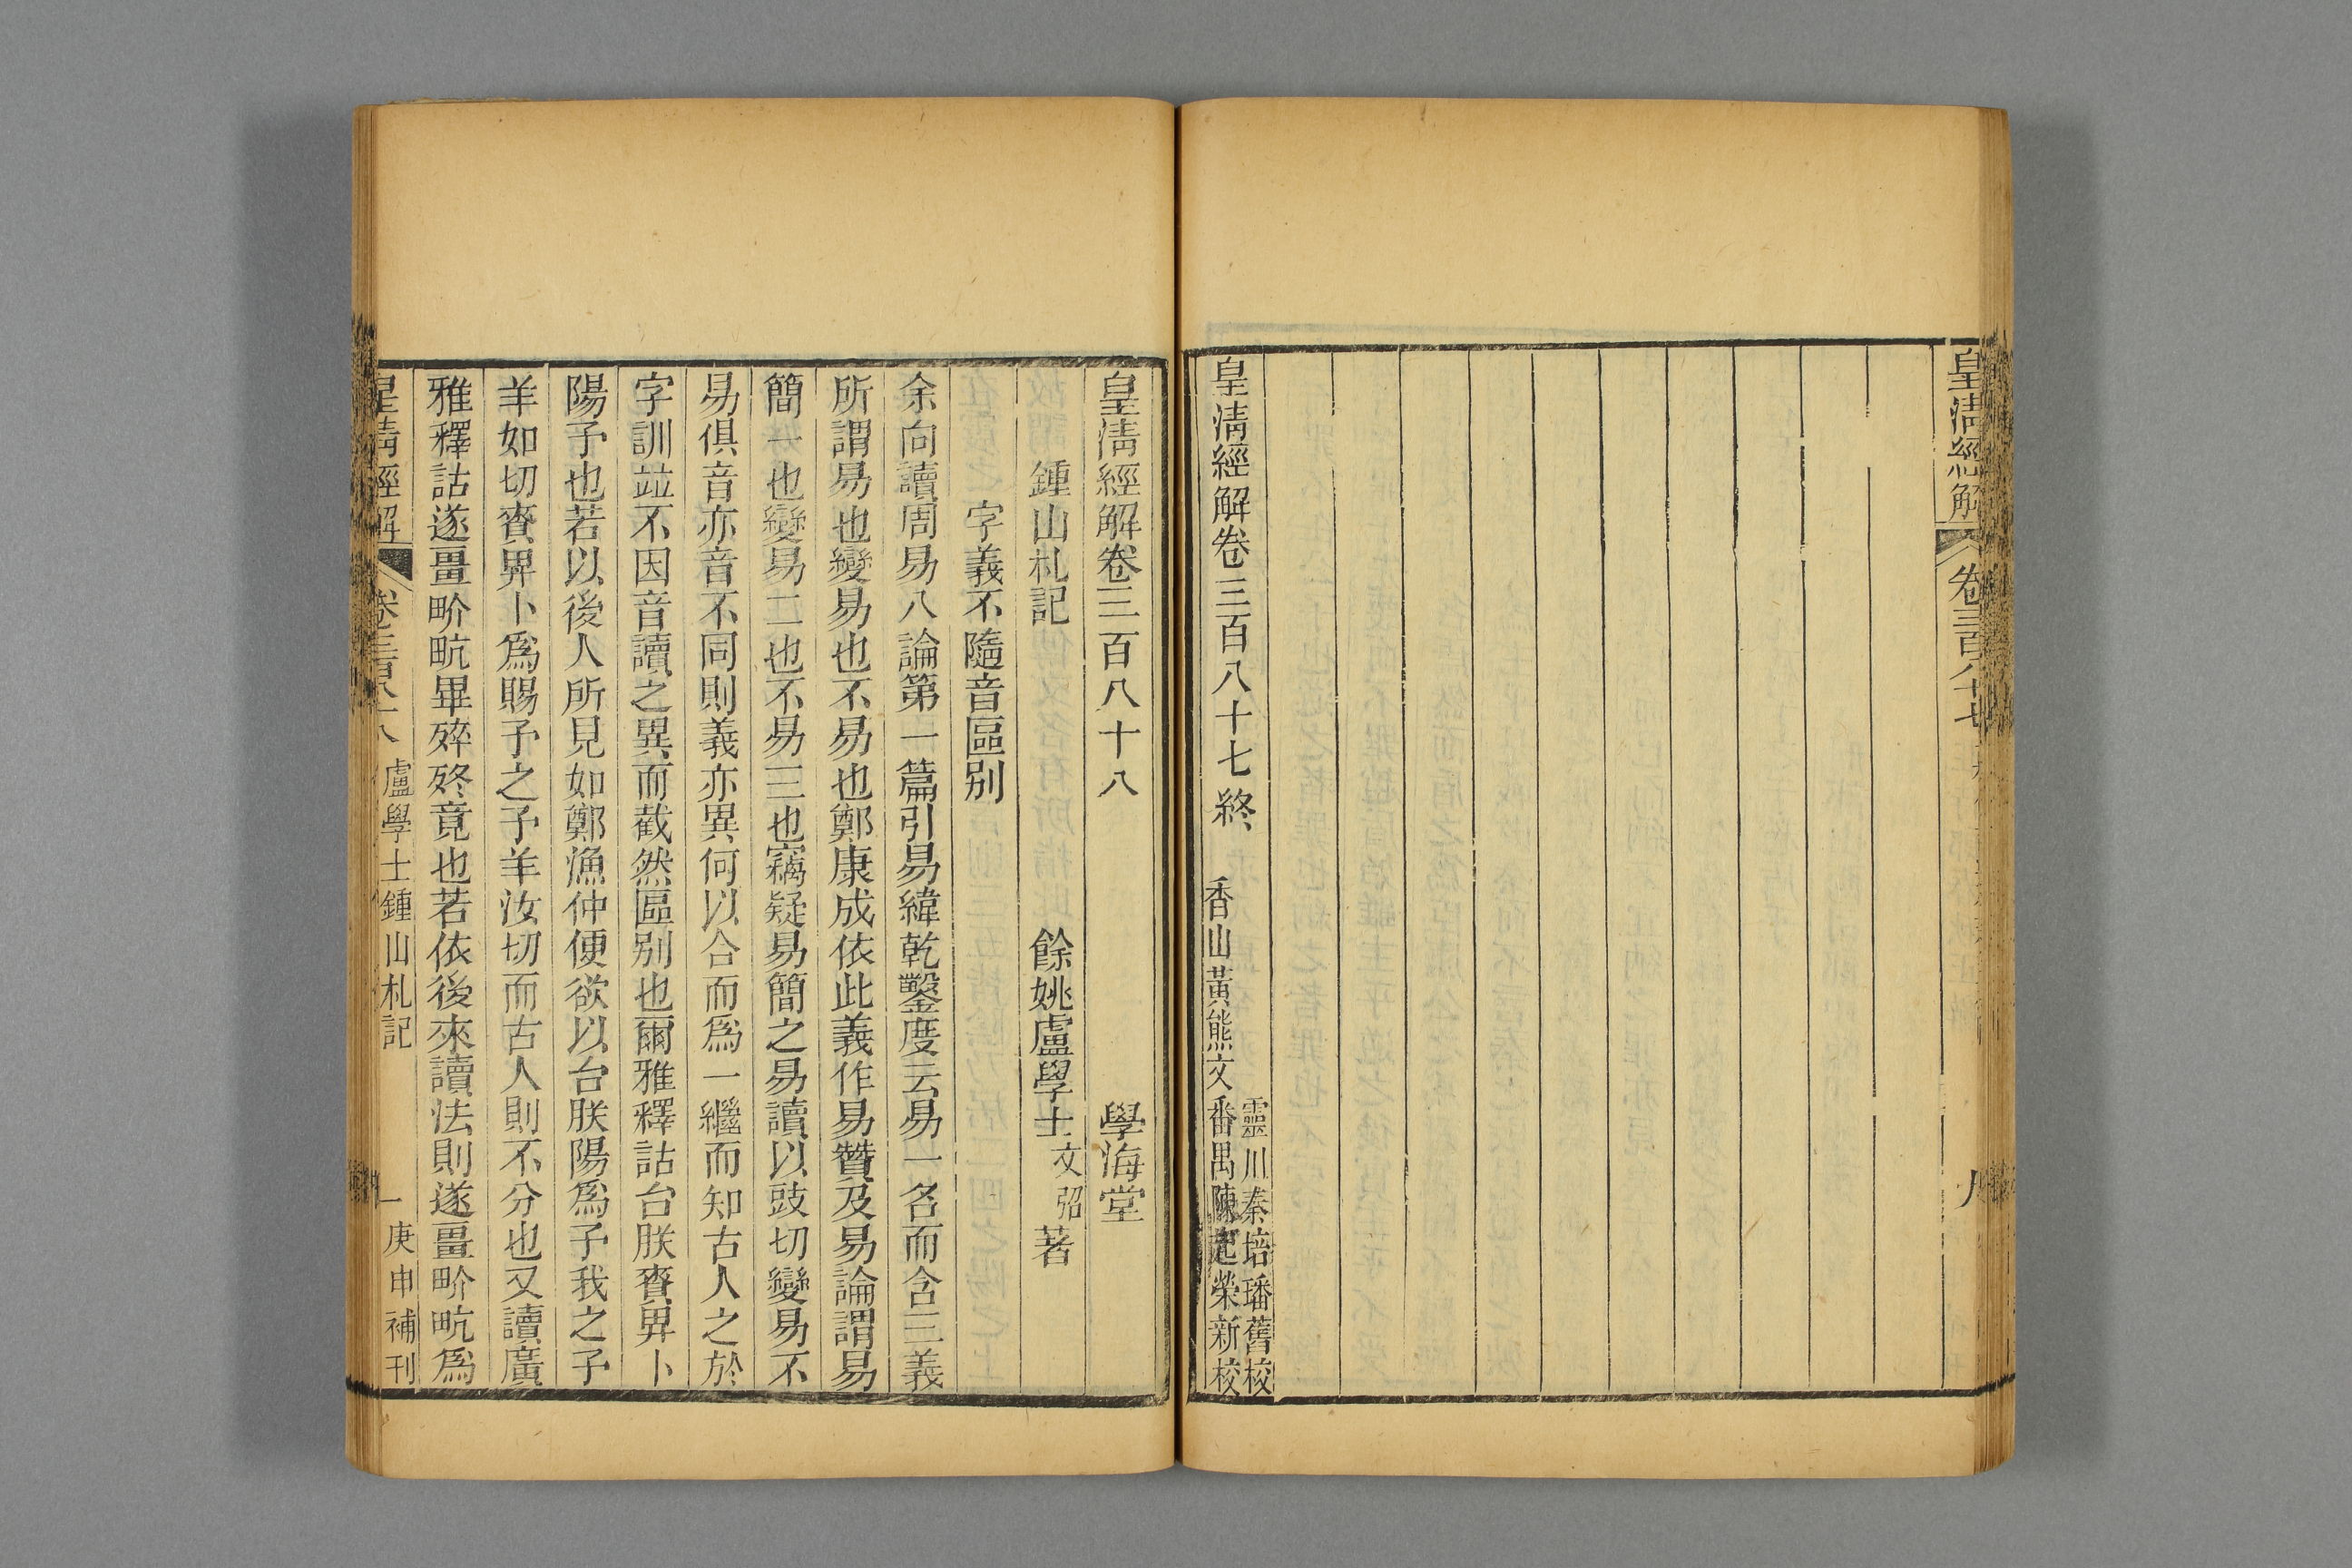 皇清經解
卷三百八十七
九
皇清經解卷三百八十七終
靈川秦培璠舊校
香山黃熊文番禺陳起榮新校
皇清經解卷三百八十八
學海堂
鍾山札記
餘姚盧學士文弨著
字義不隨音區別
余向讀周易八論第一篇引易緯乾鑿度云易一名而含三義
所謂易也變易也不易也鄭康成依此義作易贊及易論謂易
簡一也變易二也不易三也竊疑易簡之易讀以豉切變易不
易俱音亦音不同則義亦異何以合而爲一繼而知古人之於
字訓竝不因音讀之異而截然區別也爾雅釋詁台朕賚畀卜
陽予也若以後人所見如鄭漁仲便欲以台朕陽爲予我之予
羊如切賚畀卜爲賜予之予羊汝切而古人則不分也又讀廣
雅釋詁遂畺畍畞畢㱚終竟也若依後來讀法則遂畺畍畞爲
皇清經解
卷三百八十八
盧學士鍾山札記
一
庚申補刊